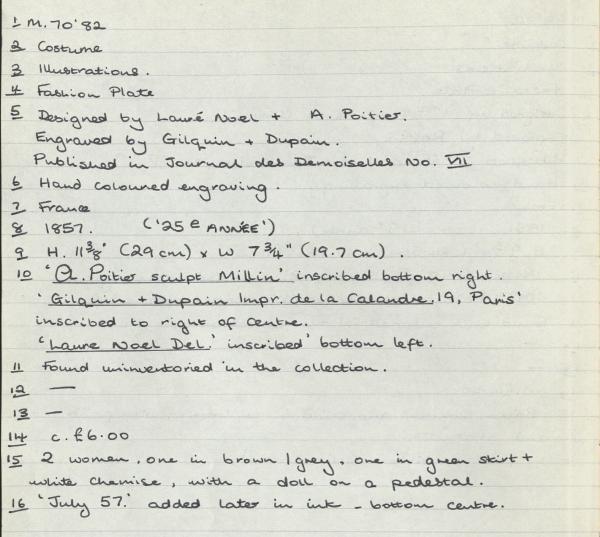 1 M.70'82
2 Costume
3 Illustrations.
4 Fashion Plate
5 Designed by Lauré Noel + A. Poitier.
Engraved by Gilquin + Dupain.
Published in Journal des Demoiselles No. VII
6 Hand coloured engraving.
7 France
8 1857. ('25 e ANNÉE')
9 H. 11 3/8" (29 cm) x W 7 3/4" (19.7 cm).
10 'A. Poitier sculpt Millin' inscribed bottom right.
'Gilquin + Dupain Impr. de la Calandre, 19, Paris'
inscribed to right of centre.
'Laure Noel Del.' inscribed bottom left.
11 Found uninventoried in the collection.
12 —
13 —
14 c. £6.00
15 2 women, one in brown/grey, one in green skirt +
white chemise, with a doll on a pedestal.
16 'July 57.' added later in ink - bottom centre.